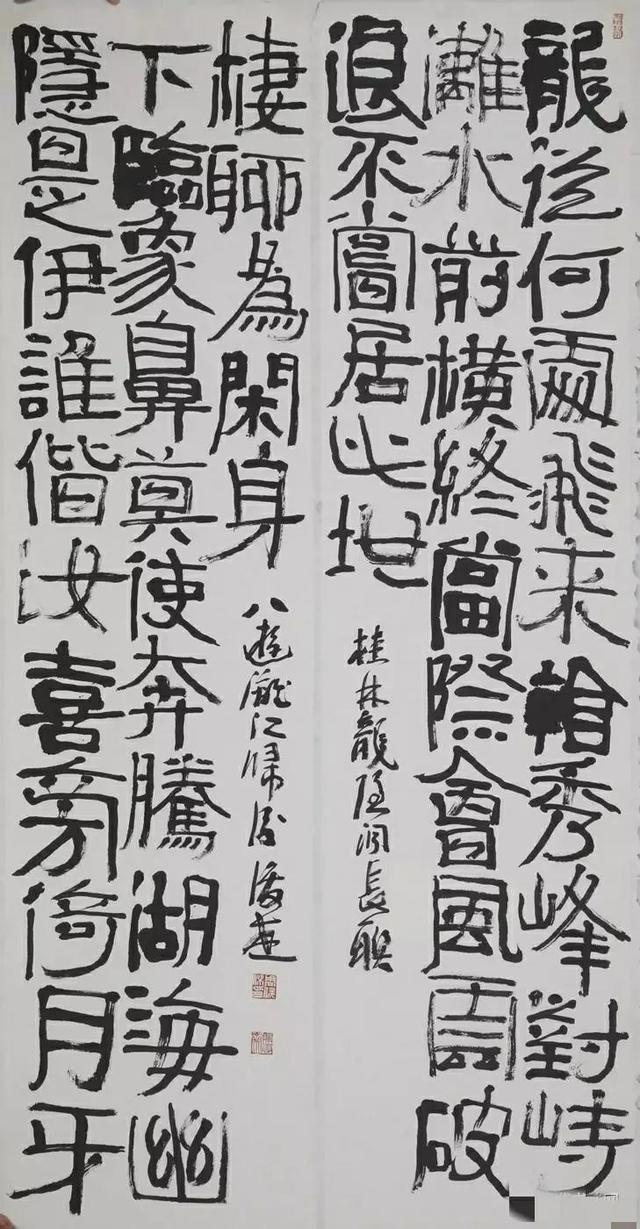 龍從何處飛來看秀峰對峙
灕水前橫終當際會風雲破
浪不嘗居此地
桂林龍隱洞長聯
隱是伊誰偕汝喜旁倚月牙
下臨象鼻莫使奔騰湖海幽
棲聊為閑身
八遊灕江歸後